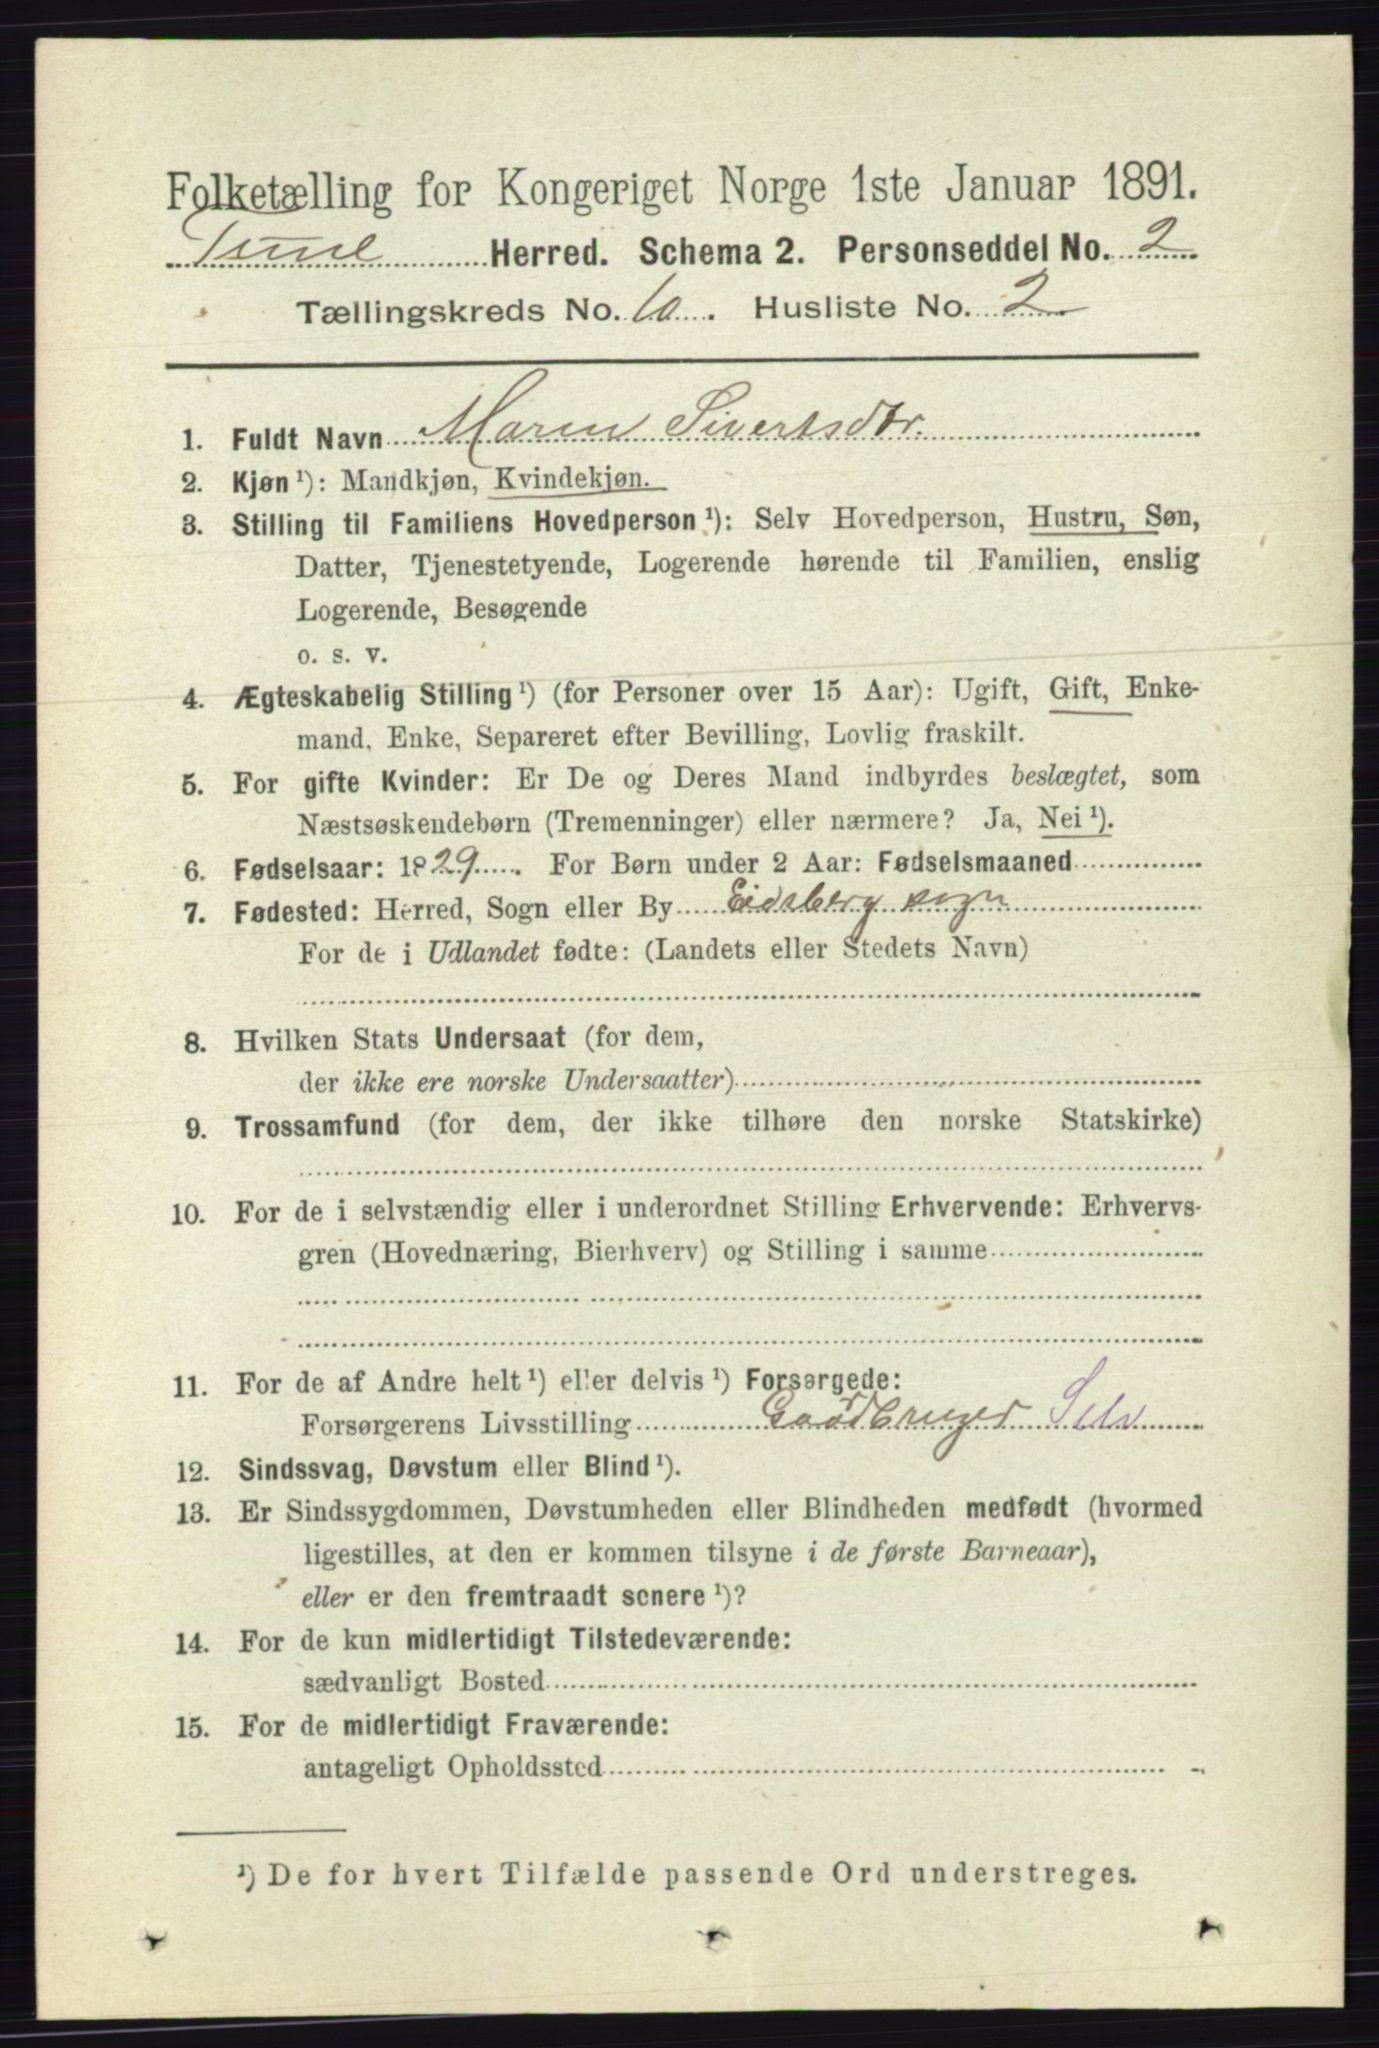 Folketælling for Kongeriget Norge 1ste Januar 1891.
Tune Herred. Schema 2. Personseddel No. 2
Tællingskreds No. 10. Husliste No. 2
1. Fuldt Navn Maren Sivertsdtr.
2. Kjøn ¹): Mandkjøn, Kvindekjøn.
3. Stilling til Familiens Hovedperson ¹): Selv Hovedperson, Hustru, Søn,
Datter, Tjenestetyende, Logerende hørende til Familien, enslig
Logerende, Besøgende
o. s. v.
4. Ægteskabelig Stilling ¹) (for Personer over 15 Aar): Ugift, Gift, Enke-
mand, Enke, Separeret efter Bevilling, Lovlig fraskilt.
5. For gifte Kvinder: Er De og Deres Mand indbyrdes beslægtet, som
Næstsøskendebørn (Tremenninger) eller nærmere? Ja, Nei ¹).
6. Fødselsaar: 1829. For Børn under 2 Aar: Fødselsmaaned
7. Fødested: Herred, Sogn eller By Eidsberg sogn
For de i Udlandet fødte: (Landets eller Stedets Navn)
8. Hvilken Stats Undersaat (for dem,
der ikke ere norske Undersaatter)
9. Trossamfund (for dem, der ikke tilhøre den norske Statskirke)
10. For de i selvstændig eller i underordnet Stilling Erhvervende: Erhvervs-
gren (Hovednæring, Bierhverv) og Stilling i samme
11. For de af Andre helt ¹) eller delvis ¹) Forsørgede:
Forsørgerens Livsstilling Gaardbruger Selv
12. Sindssvag, Døvstum eller Blind ¹).
13. Er Sindssygdommen, Døvstumheden eller Blindheden medfødt (hvormed
ligestilles, at den er kommen tilsyne i de første Barneaar),
eller er den fremtraadt senere ¹)?
14. For de kun midlertidigt Tilstedeværende:
sædvanligt Bosted
15. For de midlertidigt Fraværende:
antageligt Opholdssted
¹) De for hvert Tilfælde passende Ord understreges.